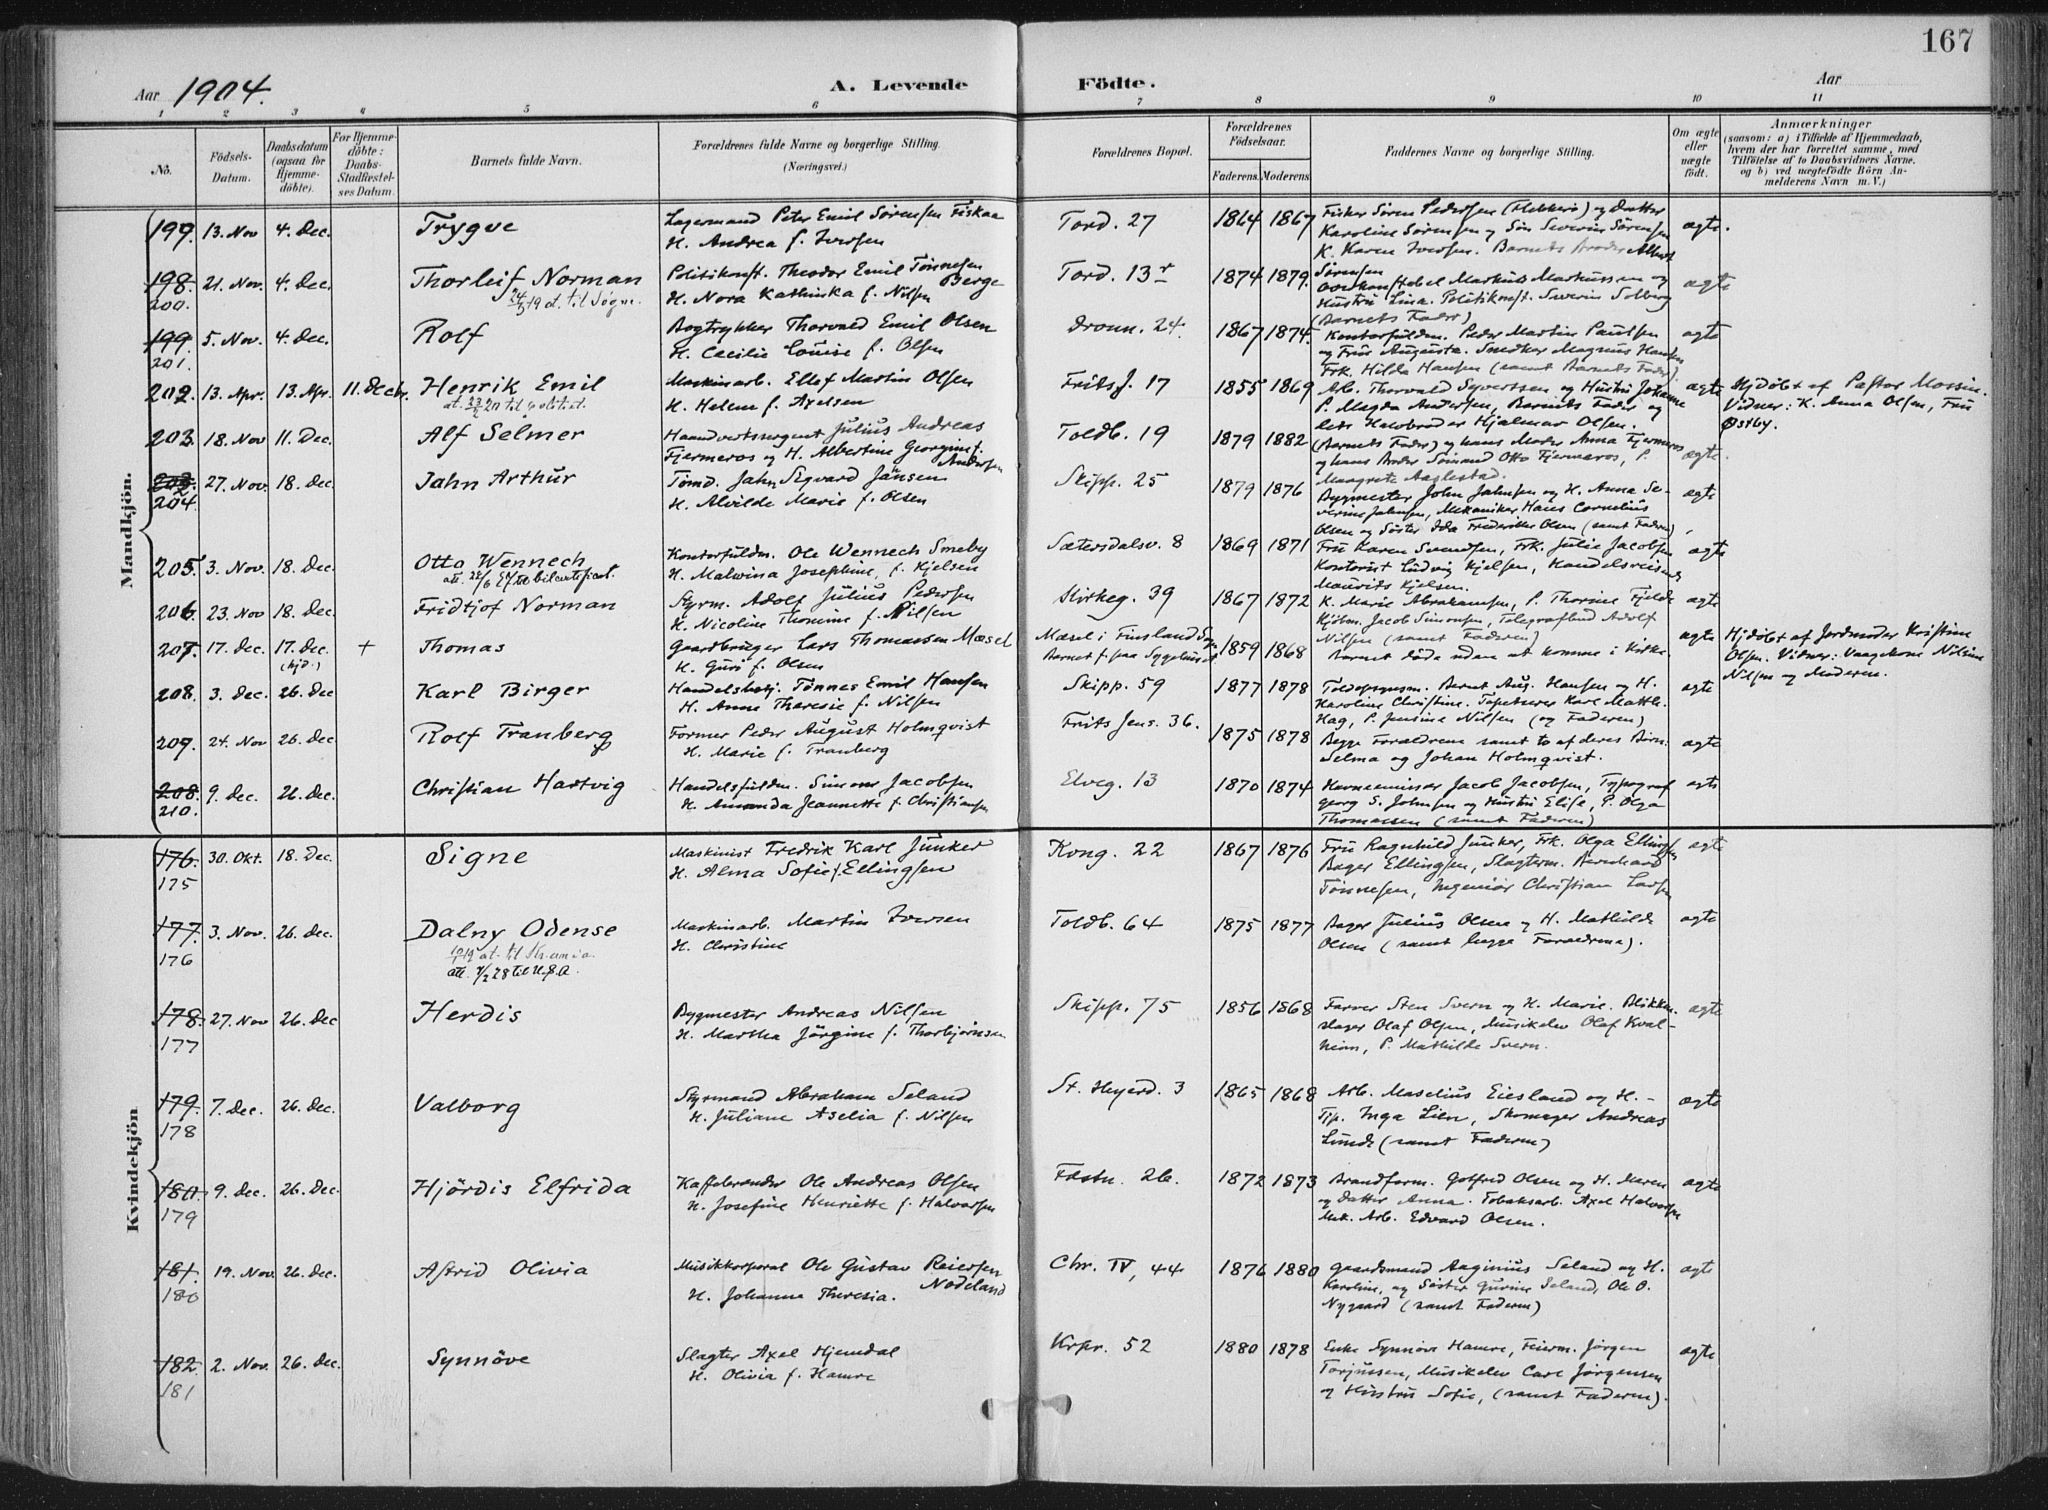 167
Aar 1904.
A. Levende Födte.
Aar
1 2 3 4 5 6 7 8 9 10 11
No.
Födsels-Datum.
Daabsdatum (ogsaa for Hjemme-döbte).
For Hjemme-döbte: Daabs-Stadfæstel-ses Datum.
Barnets fulde Navn.
Forældrenes fulde Navne og borgerlige Stilling. (Næringsvei.)
Forældrenes Bopæl.
Forældrenes Födselsaar.
Faderens. Moderens.
Faddernes Navne og borgerlige Stilling.
Om ægte eller uægte födt.
Anmærkninger
(saasom: a) i Tilfælde af Hjemmedaab, hvem der har forrettet samme, med Tilföielse af to Daabsvidners Navne. og b) ved uægtefödte Börn An-melderens Navn m. V.)
Mandkjön.
199. 13. Nov 4. Dec. Trygve
Lagermand Peter Emil Sørensen Fiskaa
H. Andrea f. Iversen
Tord. 27 1864 1867
Fisker Sören Pedersen (Flekkerö) og Datter
Karoline Sørensen og Søn Severin Sörensen
K. Karen Iversen. Barnets Broder Albert
Sörensen
ægte.
198. 200. 21. Nov. 4. Dec. Thorleif Norman
24/5 19 at. til Søgne.
Politikonst. Theodor Emil Tönnesen Berge
H. Nora Kathinka f. Nilsen
Tord. 13 1874 1879.
Overkonstabel Markus Markussen og
Hustru Lina. Politikonst. Severin Solberg
(Barnets Fader)
ægte
199 201. 5. Nov. 4. Dec. Rolf
Bogtrykker Thorvald Emil Olsen
H. Cecilie Louise f. Olsen
Dronn. 24. 1867 1874.
Kontorfuldm. Peder Martin Paulsen
og Frue Augusta. Snedker Magnus Hansen
Frk. Hilda Hansen (samt Barnets Fader)
ægte
202. 13. Apr. 13. Apr. 11. Decbr. Henrik Emil
Maskinarb. Ellef Martin Olsen
H. Helene f. Axelsen
Frits J. 17 1855 1869
Arb. Thorvald Syvertsen og Hustru Johanne
P. Magda Andersen, Barnets Fader og
dets Halvbroder Hjalmar Olsen.
ægte
Hjdöbt af Pastor Mossin.
Vidner: K. Anna Olsen, Fru
Østby.
203. 18. Nov 11. Dec. Alf Selmer
Haandverkssergent Julius Andreas
Fjermeros og H. Albertine Georgine f. Andersen
Toldb. 19 1879 1882
(Barnets Fader) og hans Moder Anna Fjermeros
og hans Broder Sömand Otto Fjermeros, P.
Margrete Aaglestad.
ægte.
204. 27. Nov. 18. Dec. Jahn Arthur
Tömd. Jahn Sigvard Jansen
H. Alvilde Marie f. Olsen
Skipp. 25 1879 1876
Bygmester John Jahnsen og H. Anna Se-
verine Jahnsen, Mekaniker Hans Cornelius
Olsen og Söster Ida Frederikke Olsen (samt Faderen)
ægte
205. 3. Nov. 18. Dec. Otto Wennech
Kontorfuldm. Ole Wennech Smeby
H. Malvina Josephine, f. Kjelsen
Sætersdalsv. 8 1869 1871
Fru Karen Svendsen, Frk. Julie Jacobsen
Kontorist Ludvig Kjelsen, Handelsreisende
Maurits Kjelsen.
ægte
206 23. Nov 18. Dec. Fridtjof Norman
Styrm. Adolf Julius Pedersen
H. Nicoline Thomine f. Nilsen
Kirkeg. 39 1867 1872
K. Marie Abrahamsen, P. Thorine Fjelde
Kjöbm. Jacob Simonsen, Telegrafbud Adolf
Nilsen (samt Faderen)
ægte
207. 17. Dec. 17. Dec. (hjd.) + Thomas
Gaardbruger Lars Thomassen Mæsel
H. Guri f. Olsen
Mæsel i Finsland Sogn
Barnet f. paa Sygehuset
1859 1868
Barnet döde uden at komme i Kirke.
ægte
Hjdöbt af Jordmoder Kristine
Olsen. Vidner: Vaagekone Nilsine
Nilsen og Moderen.
208. 3. Dec. 26. Dec Karl Birger
Handelsbetj. Tönnes Emil Hansen
H. Anne Theresie f. Nilsen
Skipp. 59 1877 1878
Toldopsynsm. Bernt Aug. Hansen og H.
Karoline Christine. Tapetserer Karl Matth.
Hag, P. Jensine Nilsen (og Faderen)
ægte
209. 24. Nov 26. Dec Rolf Tranberg
Former Peder August Holmqvist
H. Marie f. Tranberg
Frits Jens. 36. 1875 1878
Begge Forældrene samt to af deres Börn.
Selma og Johan Holmqvist.
ægte
208. 210. 9. Dec. 26. Dec. Christian Hartvig
Handelsfuldm. Simon Jacobsen
H. Amanda Jeannette f. Christiansen
Elveg. 13 1870 1874
Havnecminsær Jacob Jacobsen, Typograf
Georg S. Johnsen og Hustru Elise, P. Olga
Thomassen (samt Faderen)
ægte
Kvindekjön
176. 175 30. Okt. 18. Dec. Signe
Maskinist Fredrik Karl Junker
H. Alma Sofie f. Ellingsen
Kong. 22 1867 1876
Fru Ragnhild Junker, Frk. Olga Ellingsen
Bager Ellingsen, Slagterm. Bernhard
Tönnesen, Ingeniör Christian Larsen
ægte
177. 176 3. Nov. 26. Dec. Dalny Odense
at til Kr.ania.
att. 7/2 28 til U.S.A.
Maskinarb. Martin Iversen
H. Christine
Toldb. 64 1875 1877
Bager Julius Olsen og H. Mathilde
Olsen (samt begge Forældrene).
ægte
178. 177 27. Nov 26. Dec Herdis
Bygmester Andreas Nilsen
H. Martha Jörgine f. Thorbjörnsen
Skipp. 75 1856 1868
Farver Sten Svern og H. Marie. Blikken-
slager Olaf Olsen, Musikelev Olaf Kval-
heim, P. Mathilde Svern.
ægte
179. 178 7. Dec. 26. Dec. Valborg
Styrmand Abraham Seland
H. Juliane Aselia f. Nilsen
St. Heyerd. 3 1865 1868
Arb. Maselius Eiesland og H. -
Tjp. Inga Lien, Skomager Andreas
Lunde (samt Faderen)
ægte
180. 179 9. Dec. 26. Dec. Hjördis Elfrida
Kaffebrænder Ole Andreas Olsen
H. Josefine Henriette f. Halvorsen
Fæstn. 26. 1872 1873
Brandform. Gotfred Olsen og H. Maren
og Datter Anna. Tobaksarb. Axel Halvorsen
Mek. Arb. Edvard Olsen.
ægte
181. 180 19. Nov. 26. Dec. Astrid Olivia
Musikkorporal Ole Gustav Reiersen Nodeland
H. Johanna Theresia.
Chr. IV, 44 1876 1880
Gaardsmand Aaginius Seland og H.
Karoline, og Söster Gurine Seland, Ole O.
Nygaard (samt Faderen)
ægte
182 181 2. Nov. 26. Dec. Synnöve
Slagter Axel Hjemdal
H. Olivia f. Hamre
Krpr. 52 1880 1878
Enke Synnöve Hamre, Feierm. Jörgen
Torjussen, Musikelev Carl Jörgensen
og Hustru Sofie, (samt Faderen).
ægte